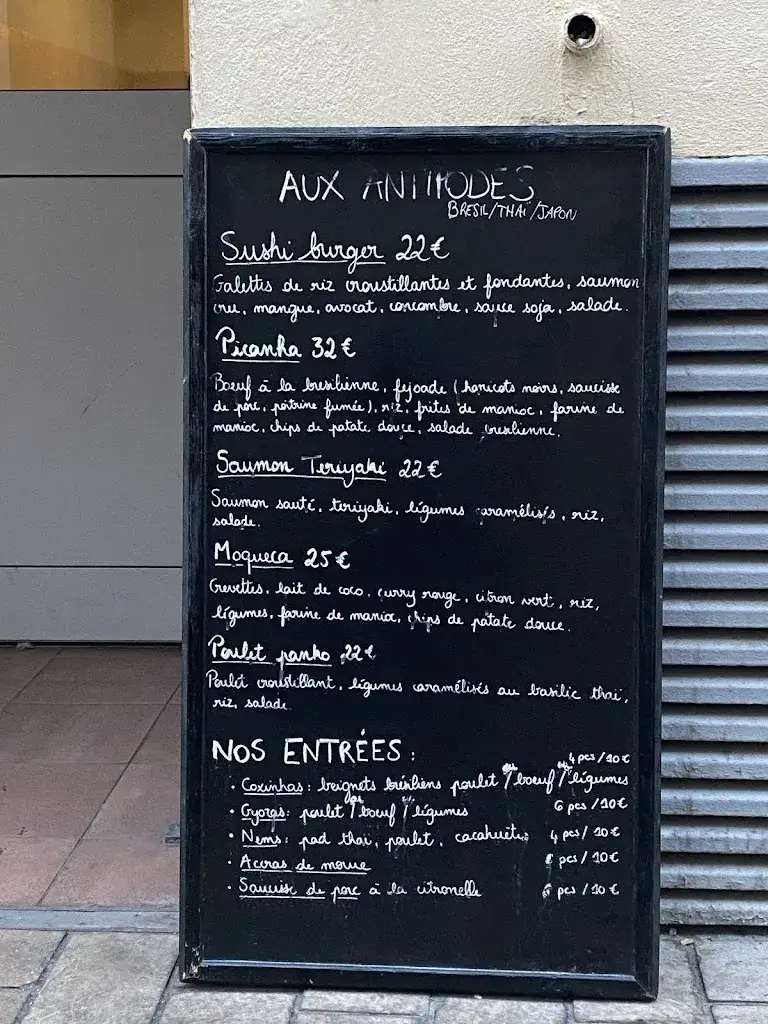 AUX ANTIPODES
BRESIL/THAÏ/JAPON
Sushi burger 22€
Galettes de riz croustillantes et fondantes, saumon
cru, mangue, avocat, concombre, sauce soja, salade.
Picanha 32€
Bœuf à la bresilienne, fejoade (haricots noirs, saucisse
de porc, poitrine fumée), riz, frites de manioc, farine de
manioc, chips de patate douce, salade bresilienne.
Saumon Teriyaki 22€
Saumon sauté, teriyaki, légumes caramélisés, riz,
salade.
Moqueca 25€
Crevettes, lait de coco, curry rouge, citron vert, riz,
légumes, farine de manioc, chips de patate douce.
Poulet panko 22€
Poulet croustillant, légumes caramélisés au basilic thaï,
riz, salade.
NOS ENTRÉES :
• Coxinhas : beignets brésiliens poulet / ou bœuf / ou légumes 4 pcs / 10€
• Gyozas : poulet / ou bœuf / ou légumes 6 pcs / 10€
• Nems : pad thaï, poulet, cacahuètes 4 pcs / 10€
• Accras de morue pcs / 10€
• Saucisse de porc à la citronelle pcs / 10€